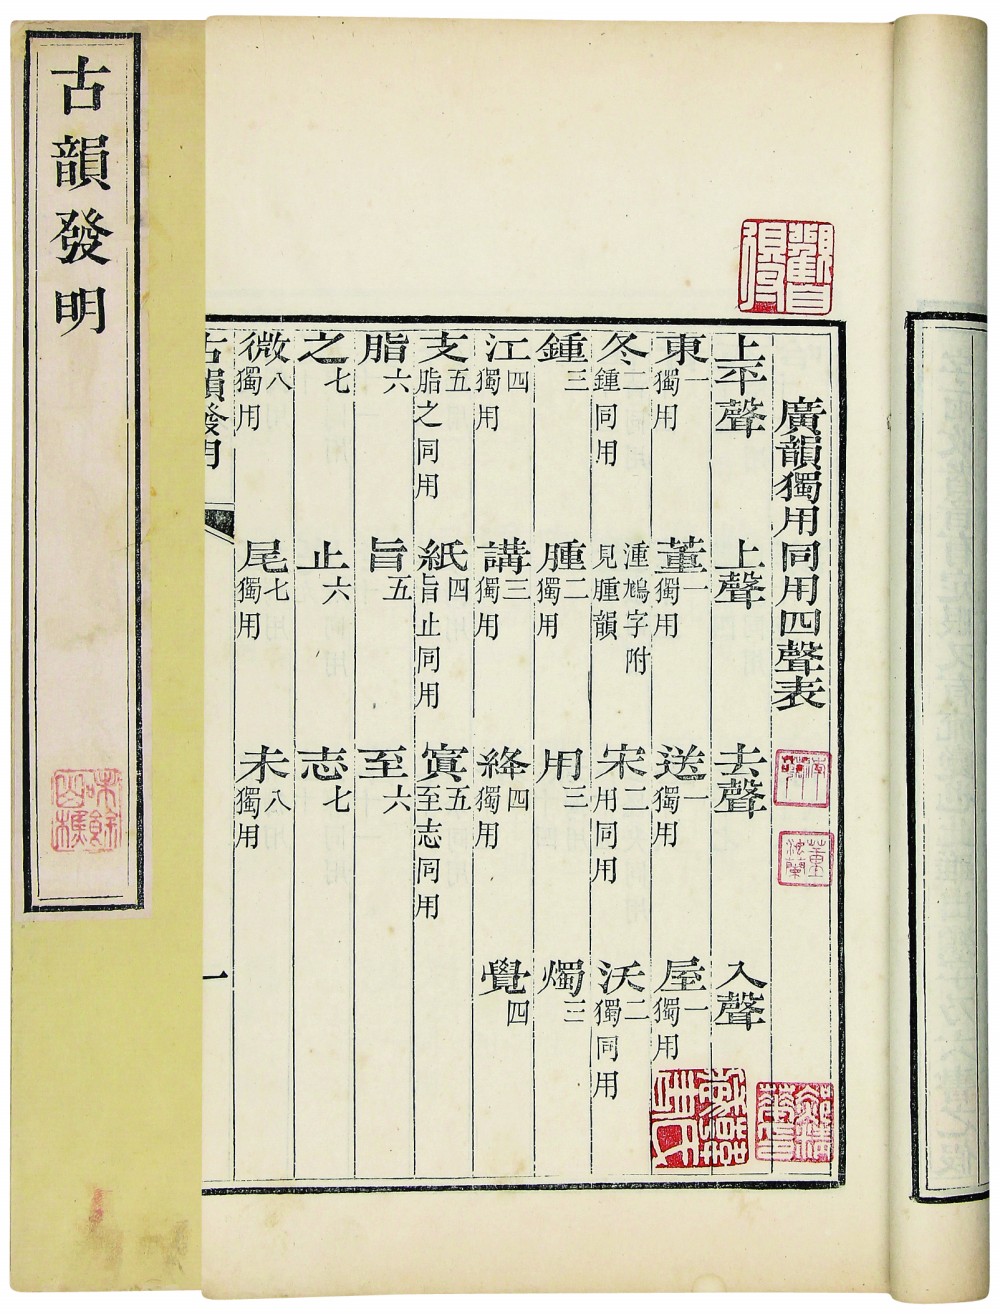 古韻發明
觀自得
廣韻獨用同用四聲表
上平聲 上聲 去聲 入聲
東一獨用 董一獨用 送一獨用 屋一獨用
冬二鍾同用 湩鳩字附見腫韻 宋二用同用 沃二獨同用
鍾三 腫二獨用 用三 燭三
江四獨用 講三獨用 絳四獨用 覺四
支五脂之同用 紙四旨止同用 寘五至志同用
脂六 旨五 至六
之七 止六 志七
微八獨用 尾七獨用 未八獨用
古韻發明 一